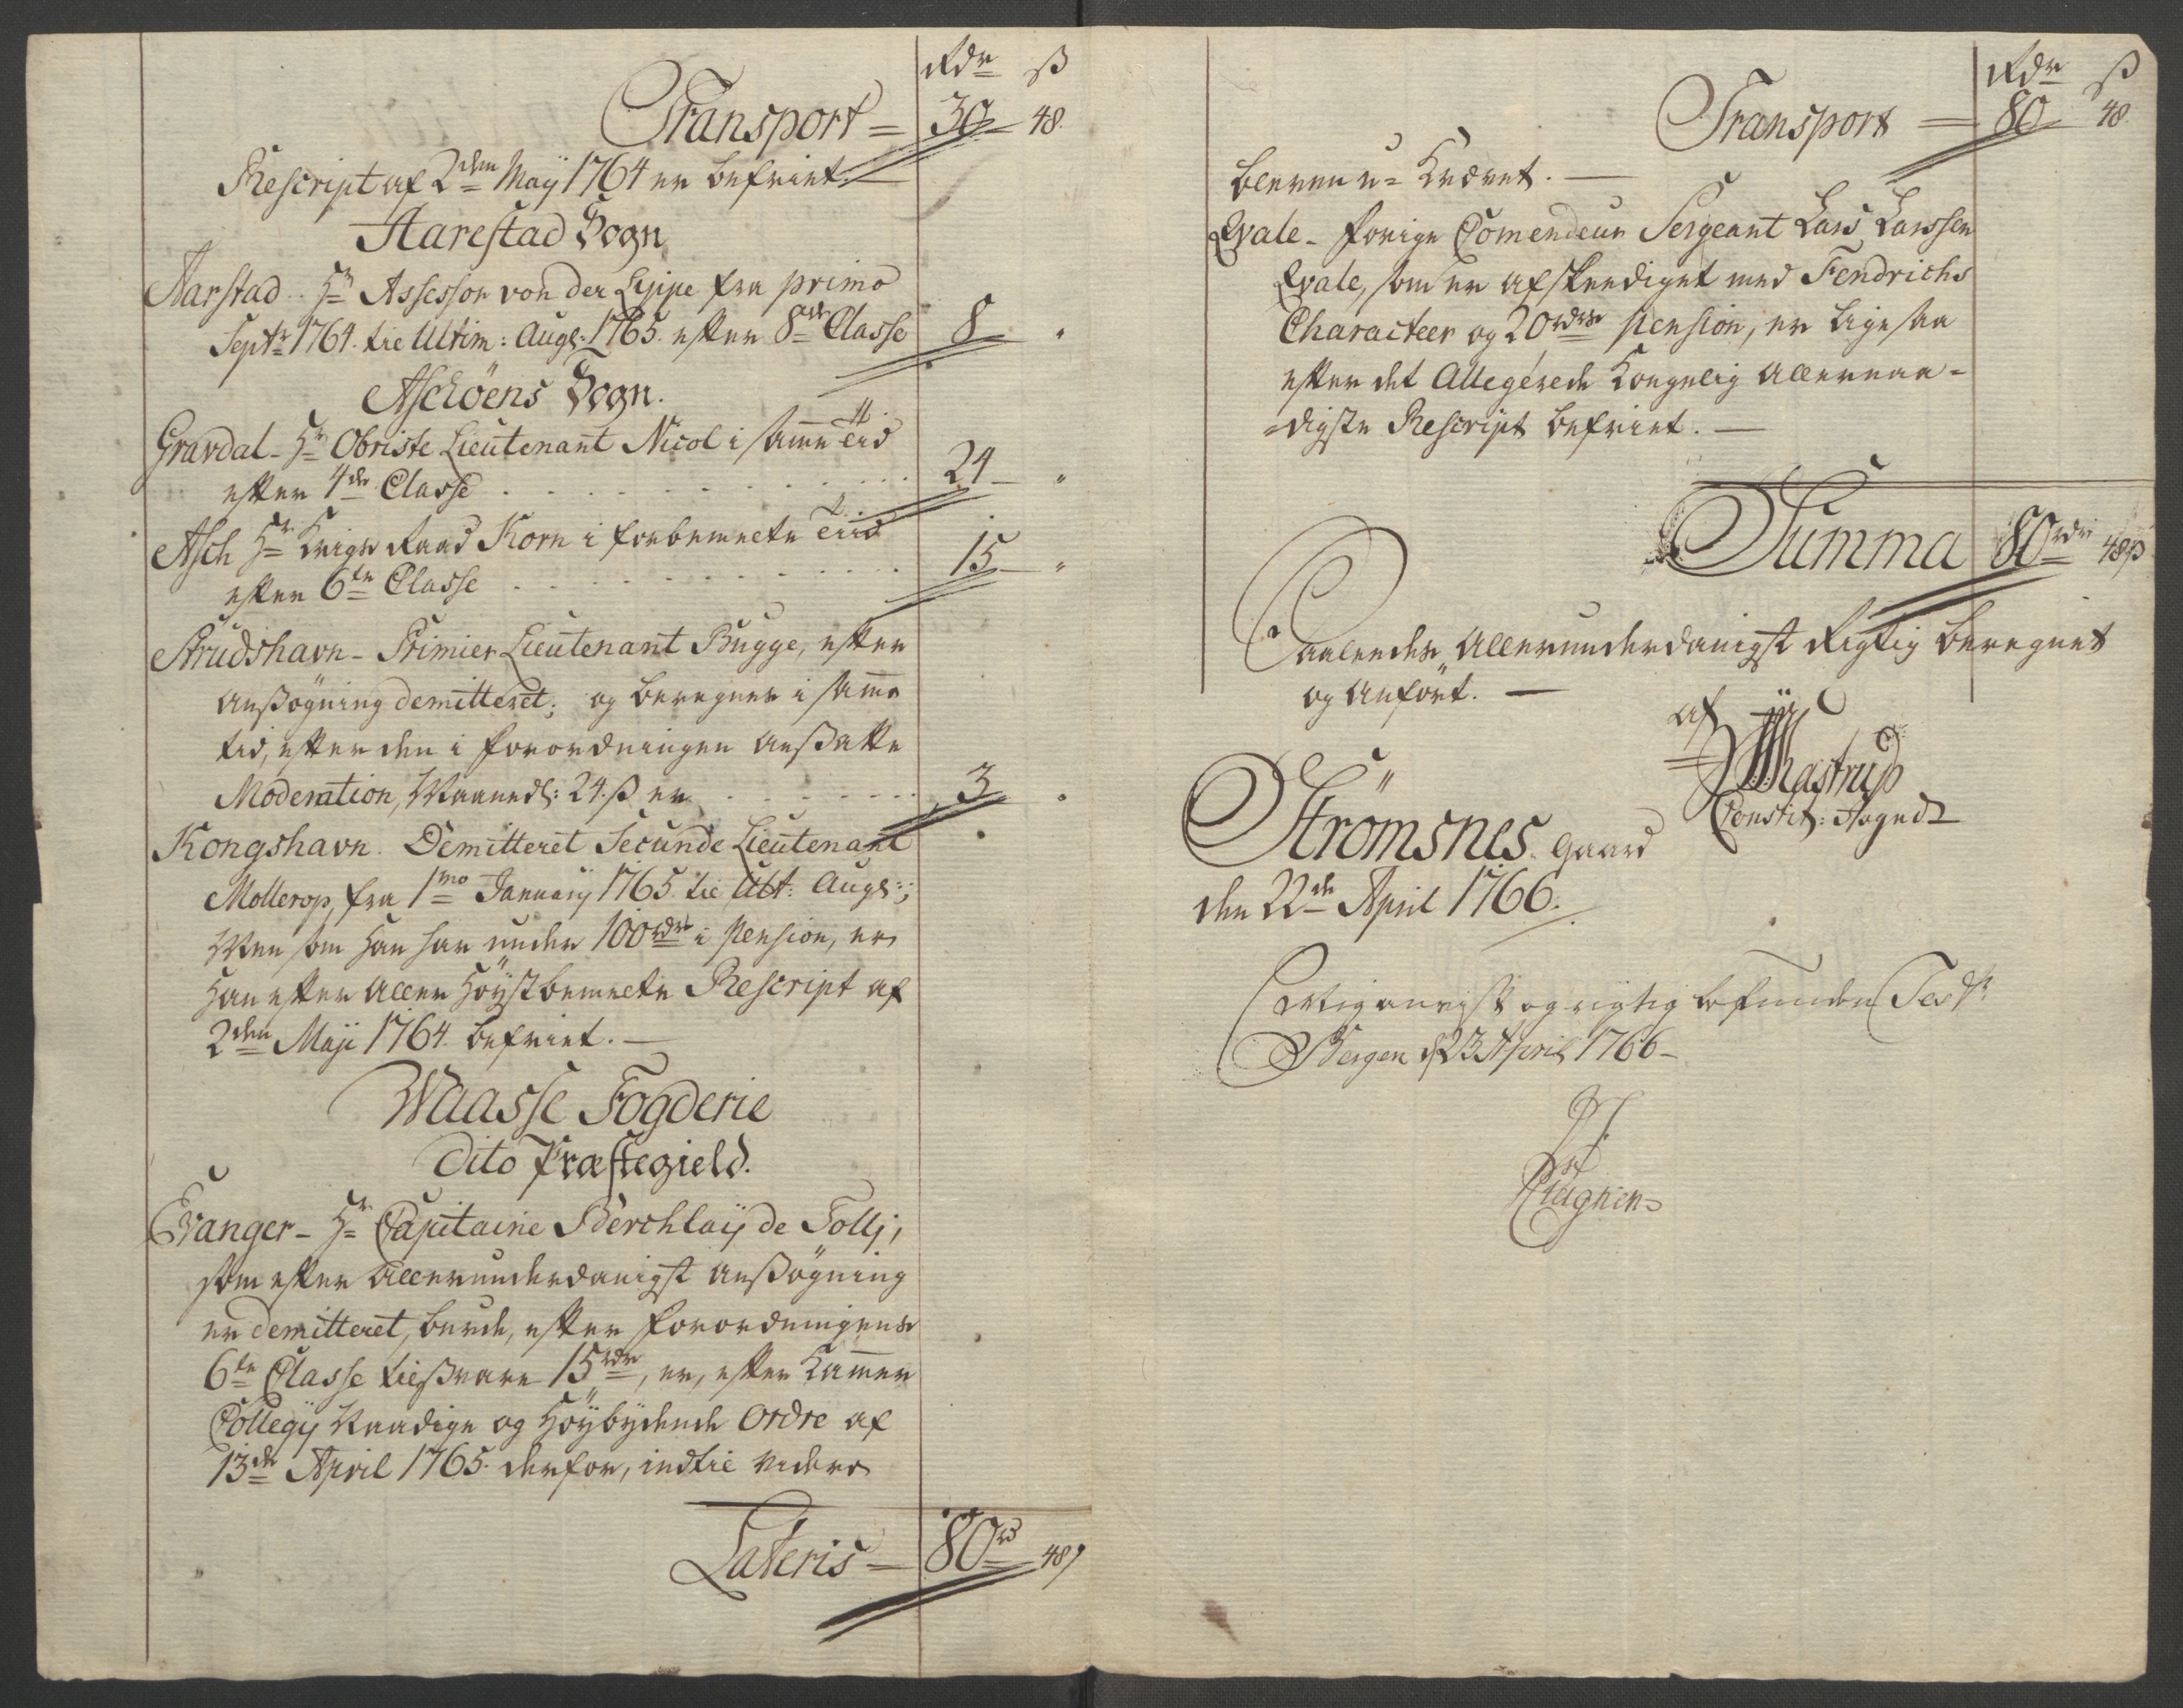 Rdr ß
Transport = 30 - 48.
Rescript af 2den Maij 1764 er befriet. —
Aarestad Sogn
Aarstad. Hr Assessor von der Lippe fra primo
Septr 1764. til Ultim: Augs: 1765. efter 8de Classe 8 "
Aschöens Sogn.
Gravdal - Hr Obriste Lieutenant Nicol i samme tid
efter 4de Classe . . . . 24 - "
Asch Hr Krigs Raad Korn i forbemelte tiid
efter 6te Classe . . . . 15 - "
Strudshavn - Primier Lieutenant Bugge, efter
ansøgning demitteret; og beregnes i samme
tid, efter den i forordningen ansatte
Moderation, Maanedl: 24 ß er . . . . 3 "
Kongshavn. Demitteret Secunde Lieutenant
Mollerop, fra 1mo Januarij 1765. til Ult: Augs:;
Men som han har under 100rdr i pension, er
han efter Aller Høystbemelte Rescript af
2den Maji 1764. befriet. —
Waasse Fogderie
Dito Præstegield.
Evanger - Hr Capitaine Berchlaij de Tolli,
som efter Allerunderdanigst ansøgning
er demitteret, burde, efter forordningens
6te Classe tilsvare 15rdr, er, efter Kammer
Collegij Naadige og Høybydende Ordre af
13de April 1765. derfor, indtil videre
Lateris = 80rd 48ß
Rdr ß
Transport = 80 48
bleven u= Krævet. —
Qvale - forige Comendeur Sergeant Lars Larssen
Qvale, som er afskeediget med Fendrichs
Characteer og 20rdrs pension, er ligesaa
efter det Allegerede Kongelig Allernaa=
=digste Rescript befriet. —
Summa 80rdr 48ß
Saaledes Allerunderdanigst Rigtig beregnet
og anført. —
af
Hastrup
Constit: Foged
Strømsnes. Gaard
den 22de April 1766.
og rigtig befunden Test:
Bergen d 23 April 1766 -